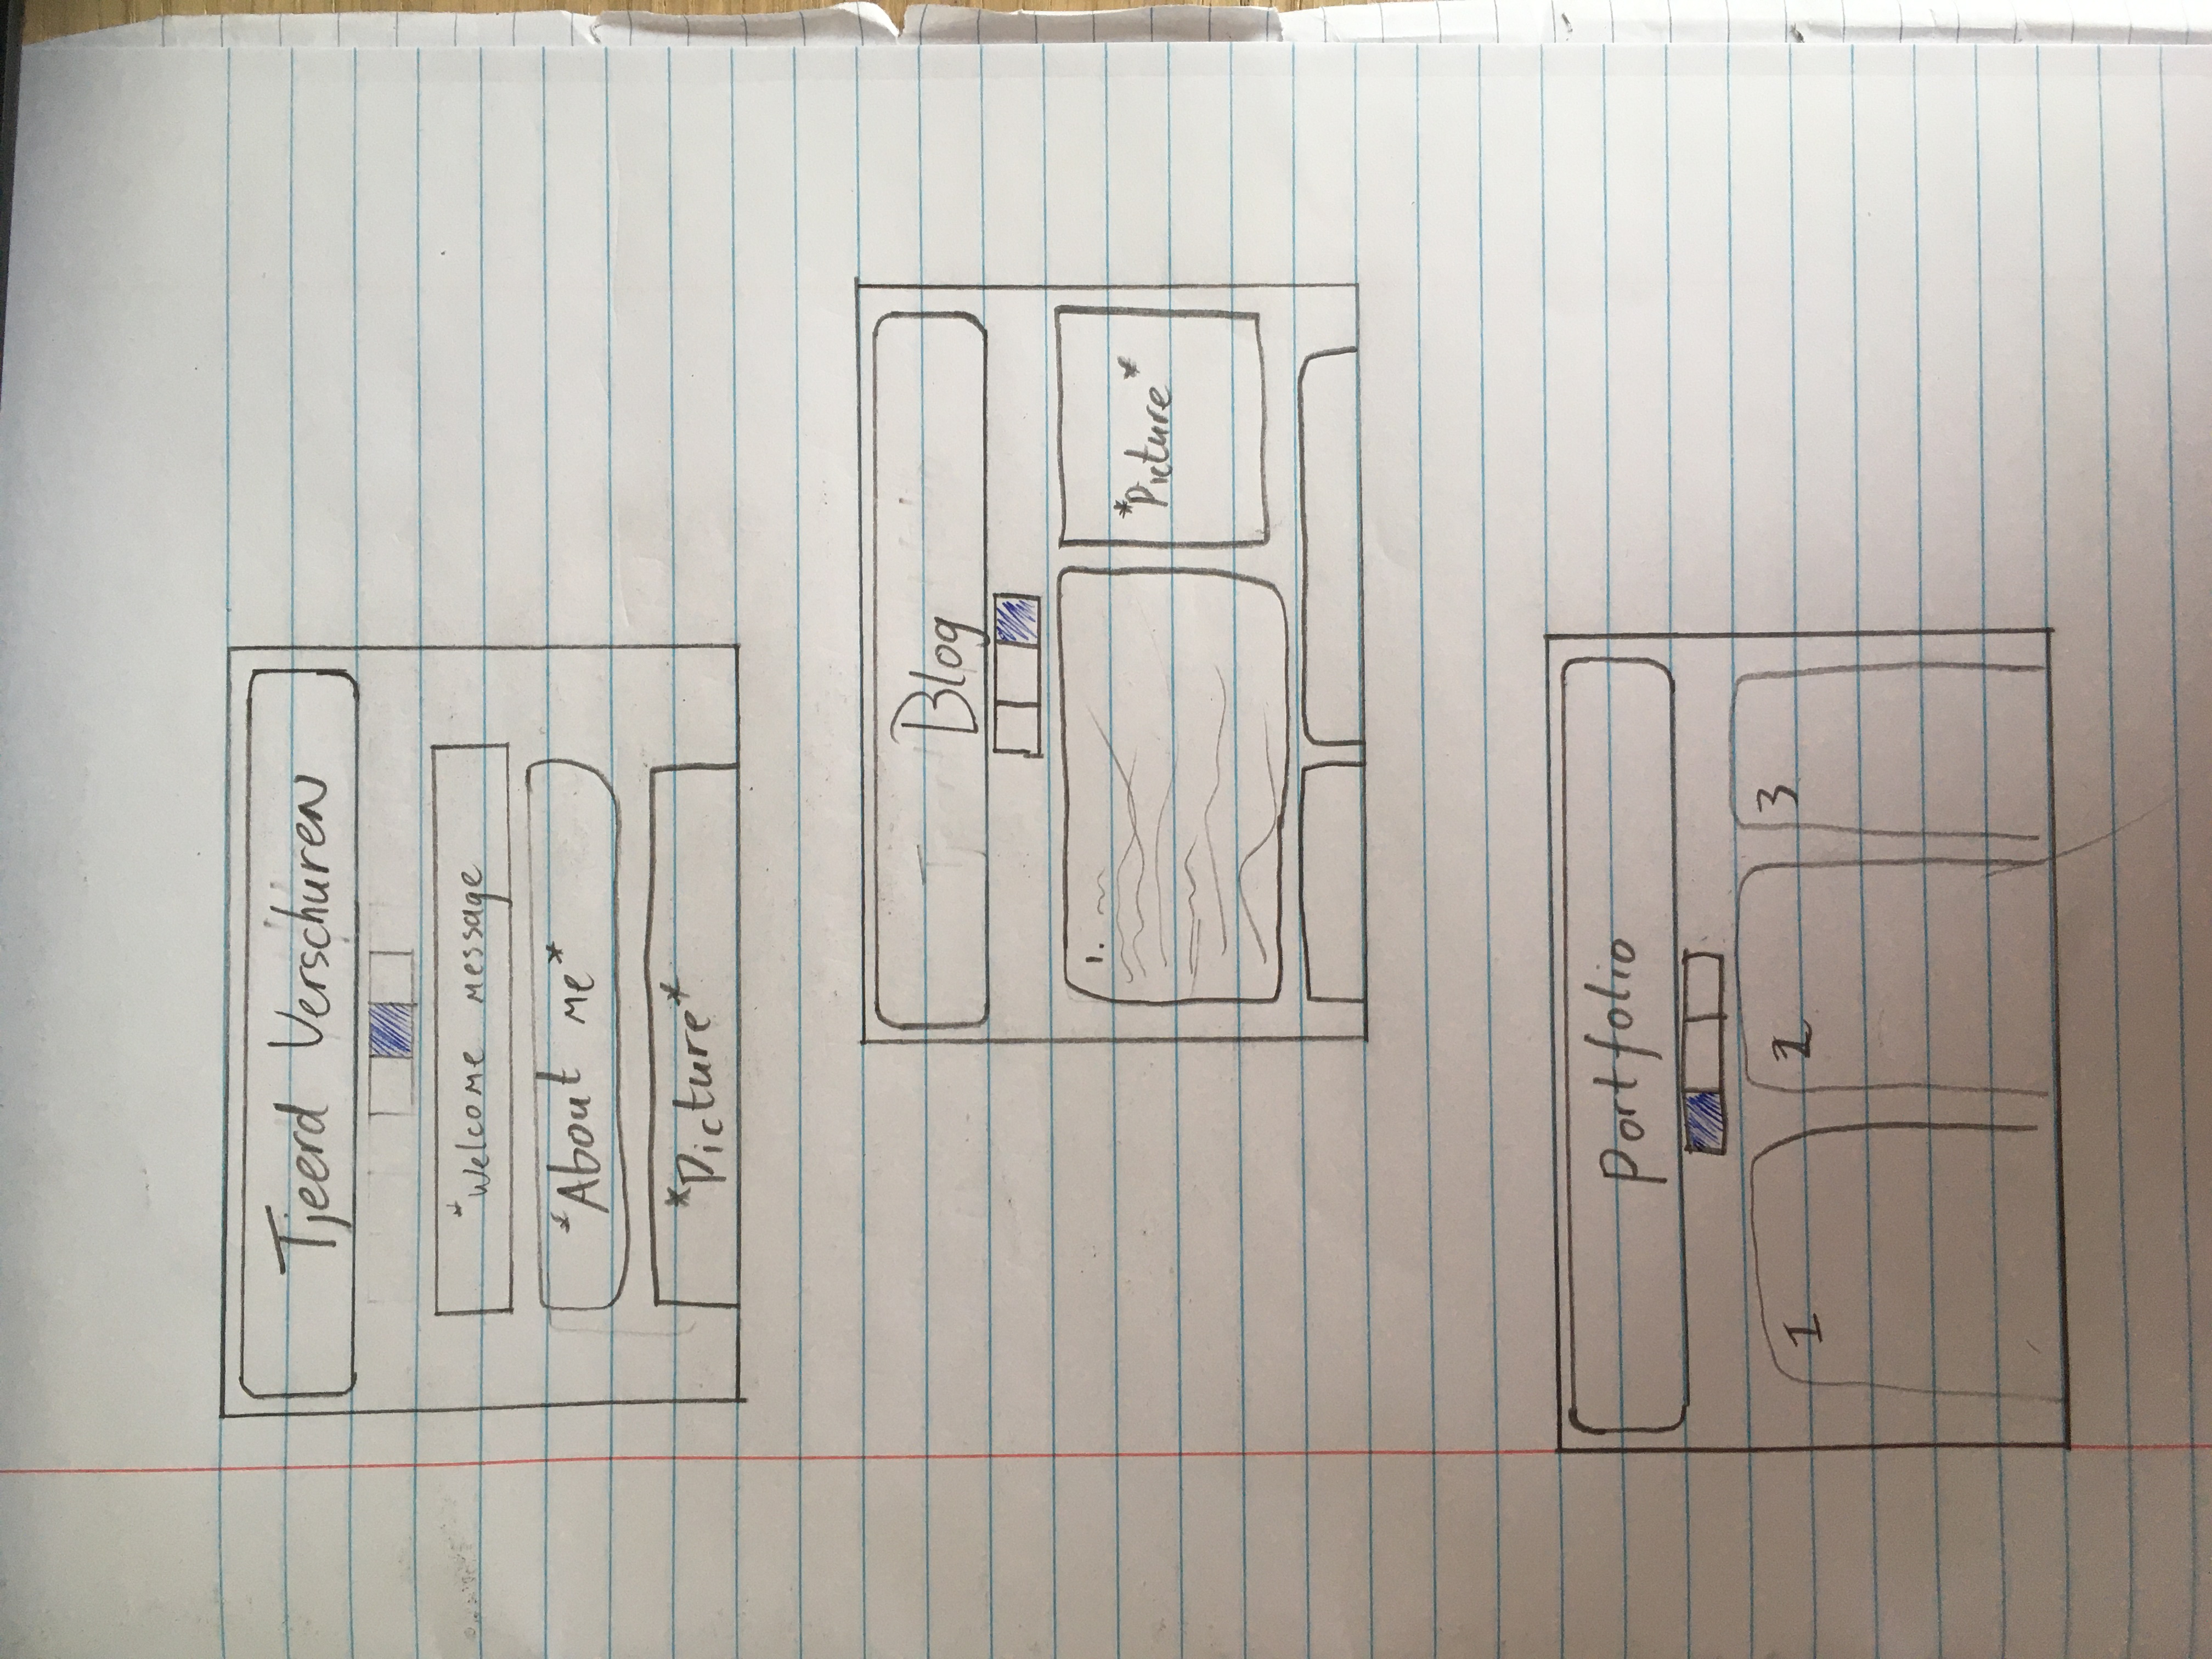 Tjeerd Verschuren
*Welcome message
*About me*
*Picture*
Blog
1.
*Picture*
Portfolio
1 2 3